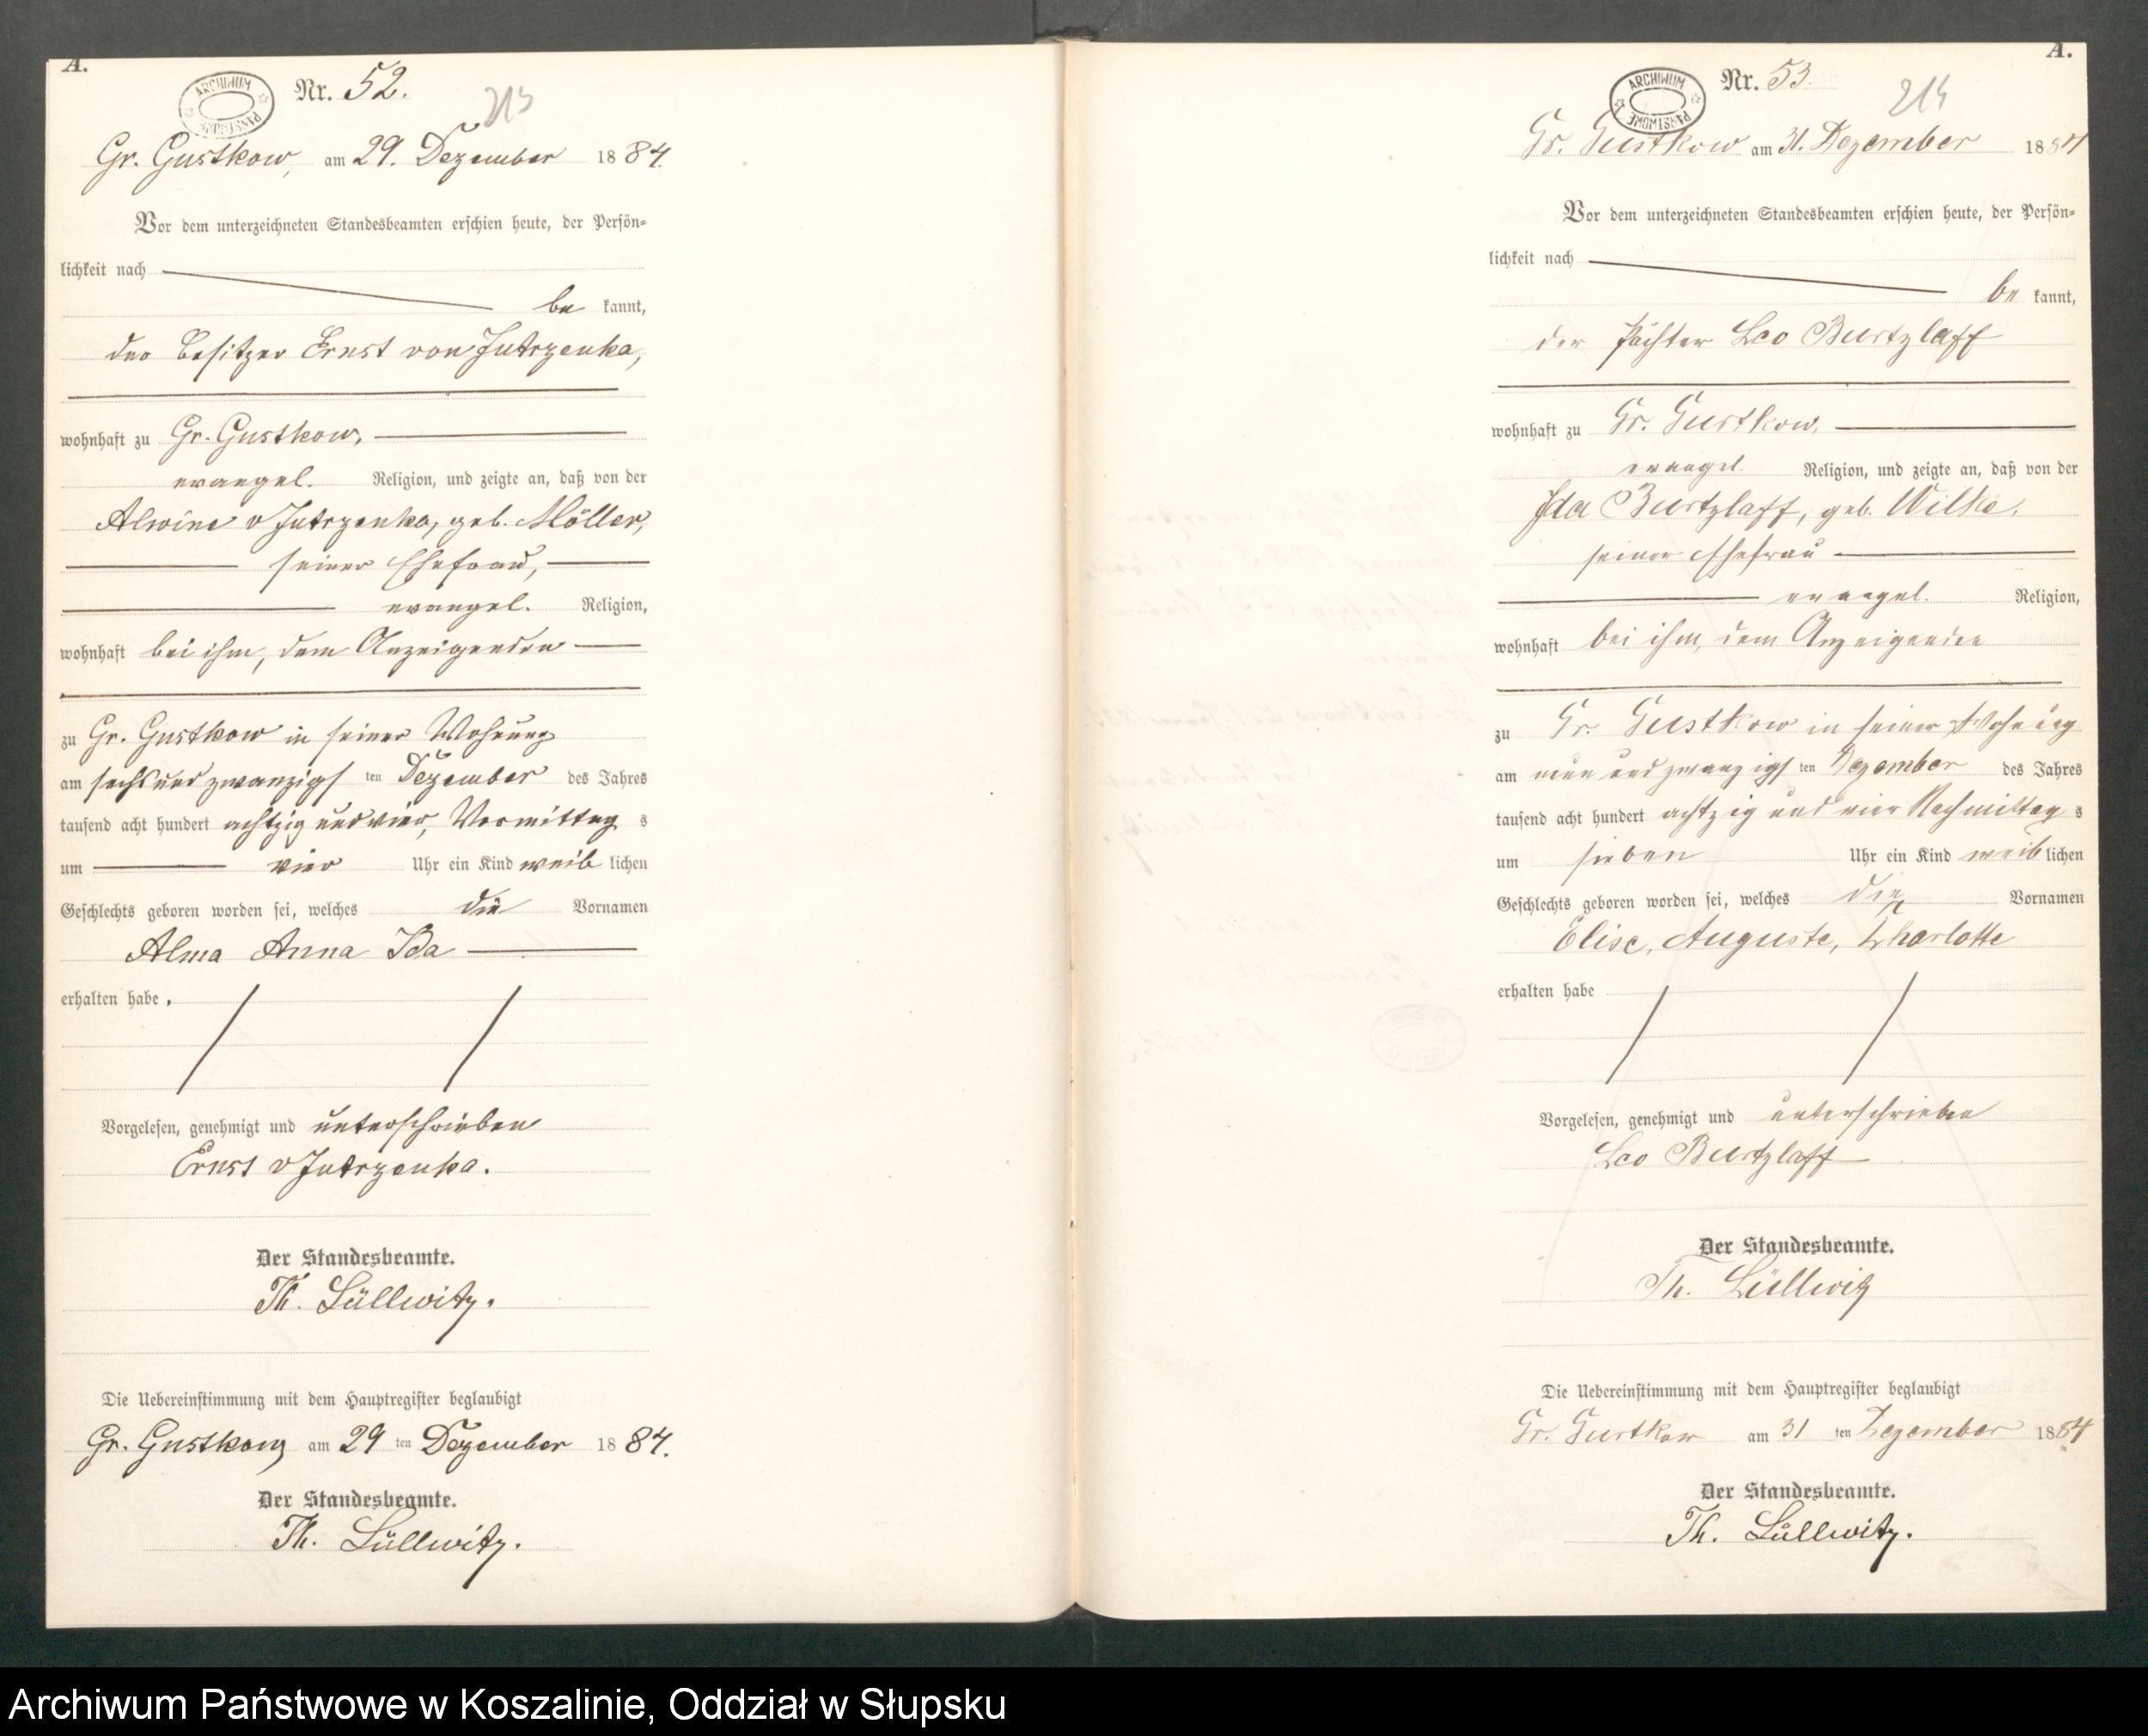 A.
ARCHIWUM PAŃSTWOWE
Nr. 52.
213
Gr. Gustkow, am 29. Dezember 1884.
Vor dem unterzeichneten Standesbeamten erschien heute, der Persön-
lichkeit nach
be kannt,
der Besitzer Ernst von Jutrzenka,
wohnhaft zu Gr. Gustkow,
evangel. Religion, und zeigte an, daß von der
Alwine v Jutrzenka, geb. Möller,
seiner Ehefrau,
evangel. Religion,
wohnhaft bei ihm, dem Anzeigenden
zu Gr. Gustkow in seiner Wohnung
am sechs und zwanzigs ten Dezember des Jahres
tausend acht hundert achtzig und vier, Vormittag s
um vier Uhr ein Kind weib lichen
Geschlechts geboren worden sei, welches die Vornamen
Alma Anna Ida
erhalten habe.
Vorgelesen, genehmigt und unterschrieben
Ernst v Jutrzenka.
Der Standesbeamte.
Th. Lüllwitz.
Die Uebereinstimmung mit dem Hauptregister beglaubigt
Gr. Gustkow, am 29 ten Dezember 1884.
Der Standesbeamte.
Th. Lüllwitz.
A.
ARCHIWUM PAŃSTWOWE
Nr. 53.
214
Gr. Gustkow am 31. Dezember 1884
Vor dem unterzeichneten Standesbeamten erschien heute, der Persön-
lichkeit nach
be kannt,
der Pächter Leo Burtzlaff
wohnhaft zu Gr. Gustkow,
evangel. Religion, und zeigte an, daß von der
Ida Burtzlaff, geb. Wilke,
seiner Ehefrau
evangel. Religion,
wohnhaft bei ihm, dem Anzeigenden
zu Gr. Gustkow in seiner Wohnung
am neun und zwanzigs ten Dezember des Jahres
tausend acht hundert achtzig und vier Nachmittag s
um sieben Uhr ein Kind weib lichen
Geschlechts geboren worden sei, welches die Vornamen
Elise, Auguste, Charlotte
erhalten habe
Vorgelesen, genehmigt und unterschrieben
Leo Burtzlaff
Der Standesbeamte.
Th. Lüllwitz
Die Uebereinstimmung mit dem Hauptregister beglaubigt
Gr. Gustkow am 31 ten Dezember 1884
Der Standesbeamte.
Th. Lüllwitz.
Archiwum Państwowe w Koszalinie, Oddział w Słupsku